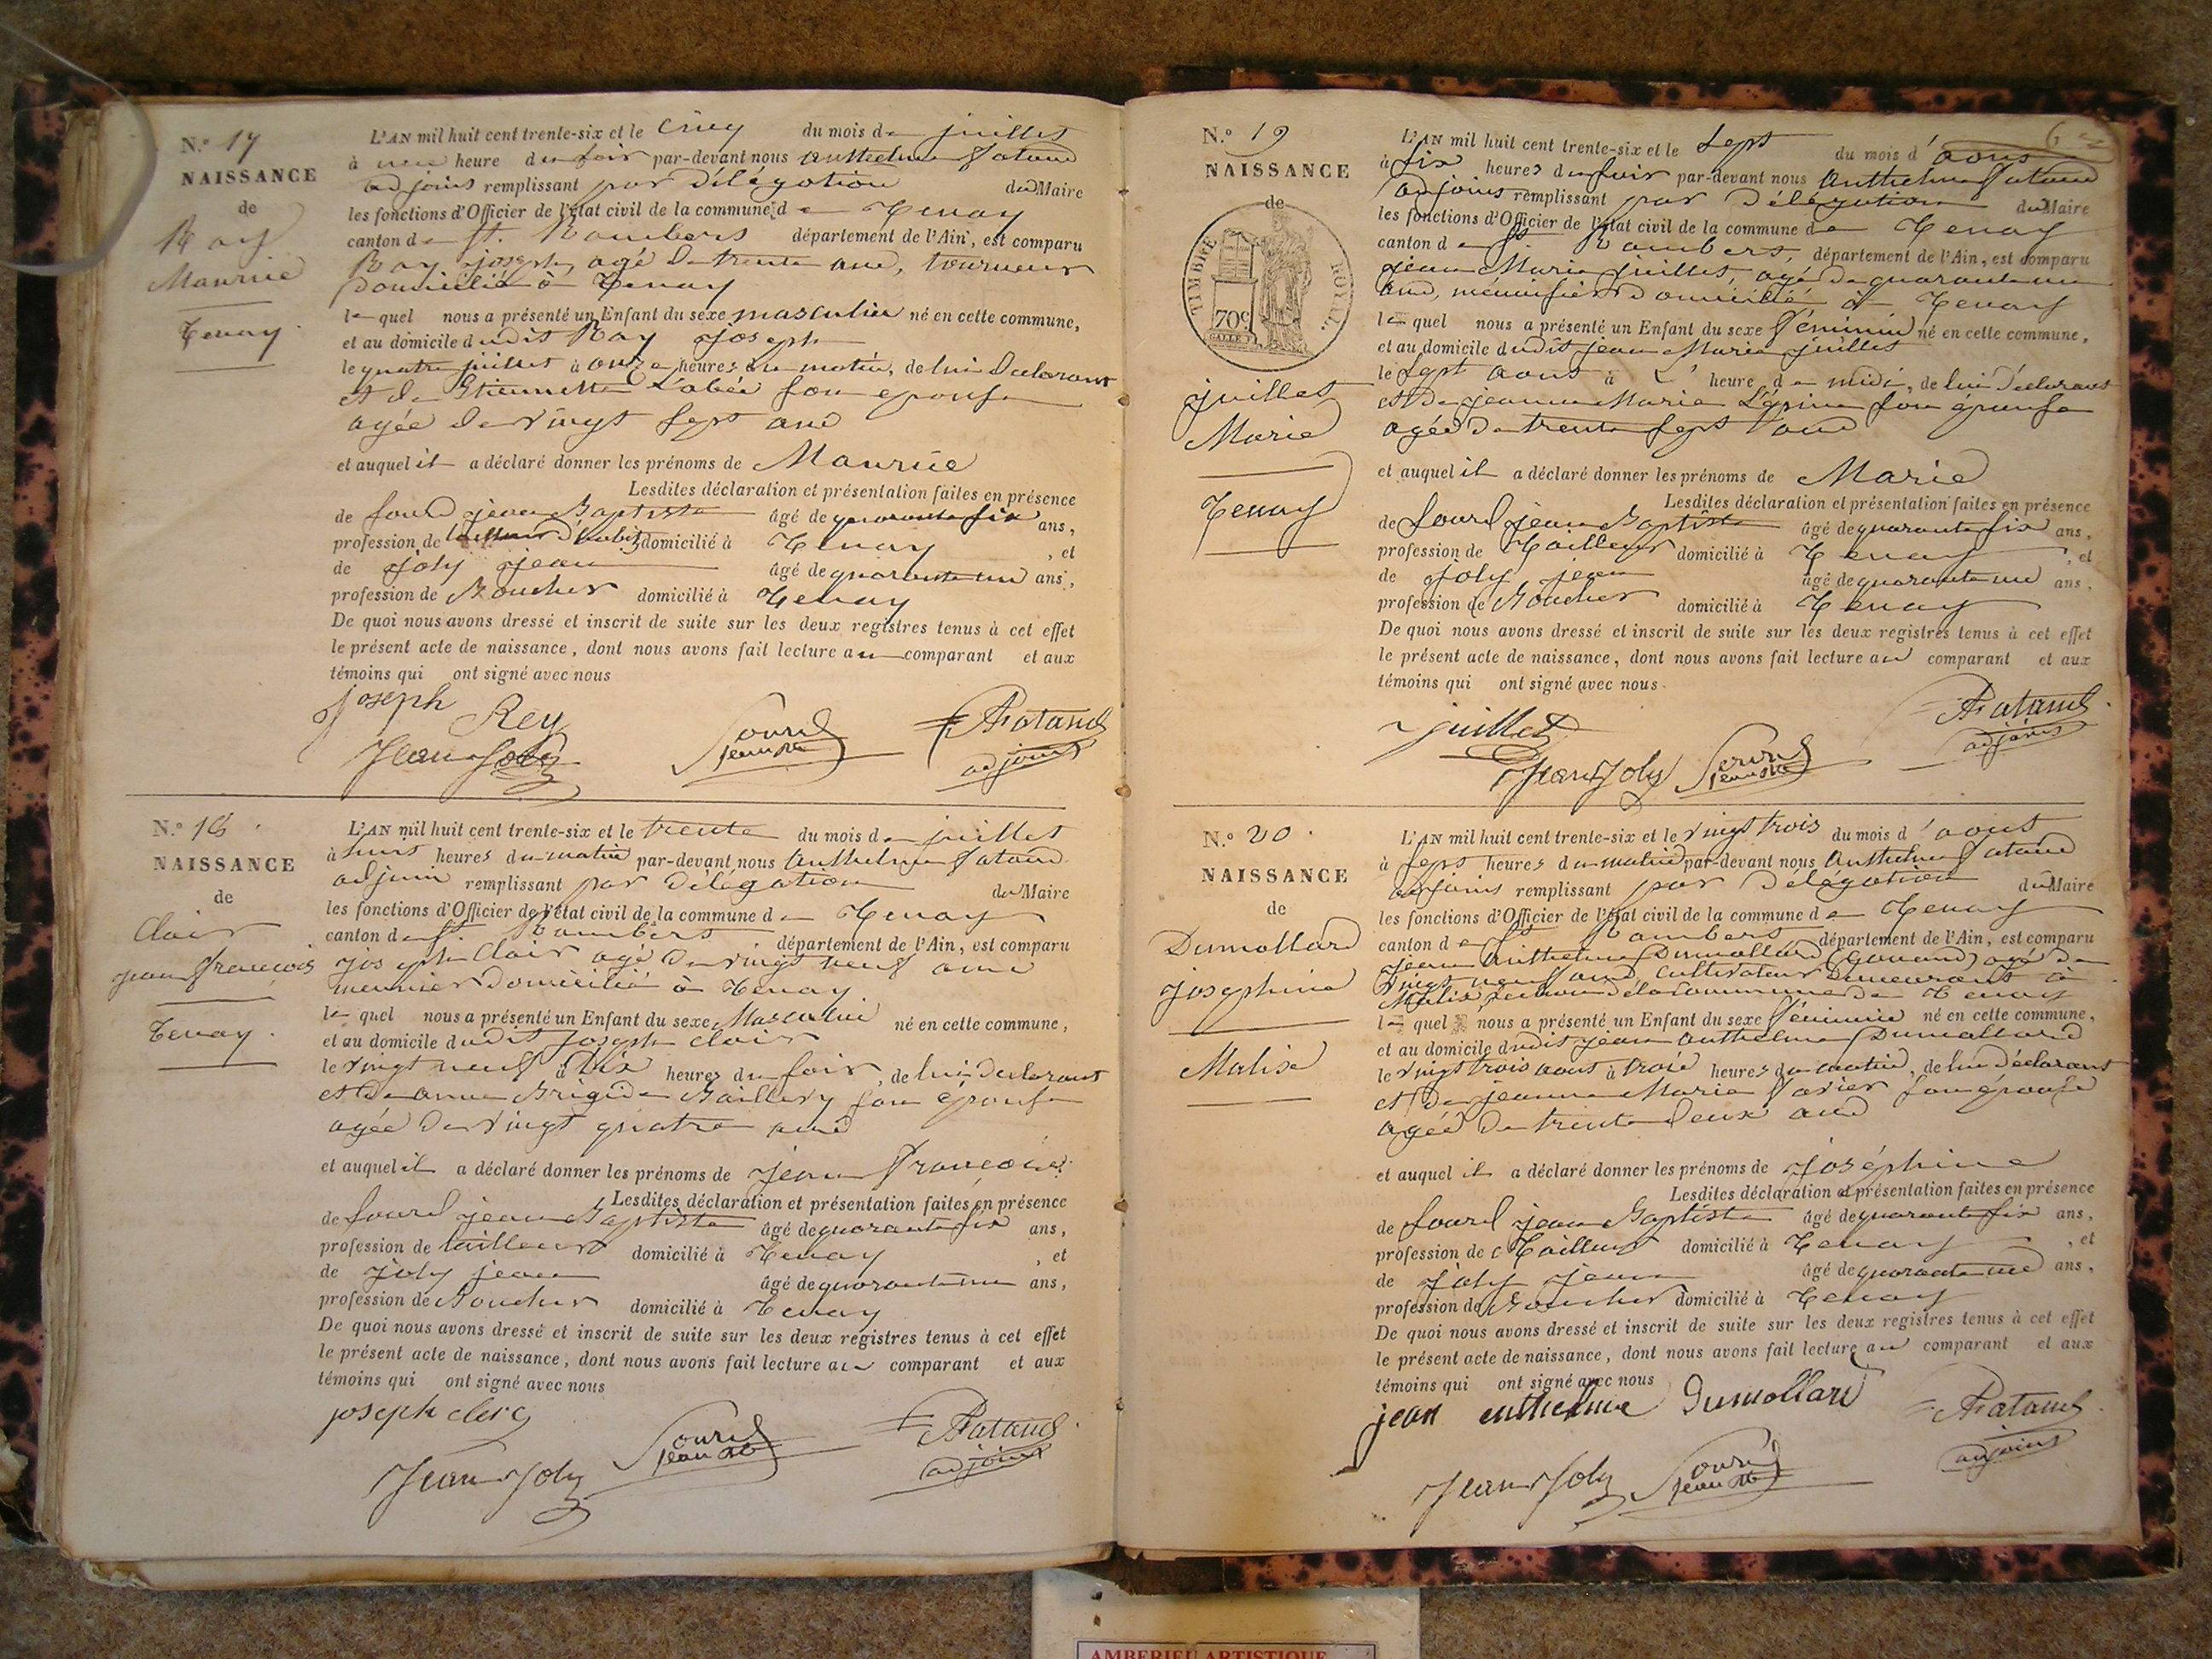 N.º 17
NAISSANCE
de
Ray
Maurice
Tenay.
L'AN mil huit cent trente-six et le cinq du mois de juillet
à une heure du soir par-devant nous Anthelme Fatand
adjoint remplissant par délégation du Maire
les fonctions d'Officier de l'état civil de la commune de Tenay
canton de St. Rambert département de l'Ain, est comparu
Ray joseph, agé de trente ans, tourneur
domicilié à Tenay
lequel nous a présenté un Enfant du sexe masculin né en cette commune,
et au domicile dudit Ray joseph
le quatre juillet à onze heures du matin, de lui déclarant
et de Etiennette Labée son épouse
agée de vingt sept ans
et auquel il a déclaré donner les prénoms de Maurice
Lesdites déclaration et présentation faites en présence
de jean Baptiste âgé de quarante six ans,
profession de tailleur d'habits domicilié à Tenay, et
de joly jean âgé de quarante un ans,
profession de Boucher domicilié à Tenay
De quoi nous avons dressé et inscrit de suite sur les deux registres tenus à cet effet
le présent acte de naissance, dont nous avons fait lecture au comparant et aux
témoins qui ont signé avec nous
joseph Rey
Jean Joly
adjoint
N.º 18
NAISSANCE
de
Clair
jean françois
Tenay.
L'AN mil huit cent trente-six et le trente du mois de juillet
à huit heures du matin par-devant nous Anthelme Fatand
adjoint remplissant par délégation du Maire
les fonctions d'Officier de l'état civil de la commune de Tenay
canton de St. Rambert département de l'Ain, est comparu
joseph Clair agé de vingt neuf ans
meunier domicilié à Tenay
lequel nous a présenté un Enfant du sexe Masculin né en cette commune,
et au domicile dudit joseph clair
le vingt neuf à dix heures du soir, de lui déclarant
et de anne Brigide Baillery son épouse
agée de vingt quatre ans
et auquel il a déclaré donner les prénoms de jean françois
Lesdites déclaration et présentation faites en présence
de jean Baptiste âgé de quarante six ans,
profession de tailleur domicilié à Tenay, et
de joly jean âgé de quarante un ans,
profession de Boucher domicilié à Tenay
De quoi nous avons dressé et inscrit de suite sur les deux registres tenus à cet effet
le présent acte de naissance, dont nous avons fait lecture au comparant et aux
témoins qui ont signé avec nous
joseph clerc
Jean Joly
adjoint
N.º 19
NAISSANCE
de
TIMBRE ROYAL.
70c
juillet
Marie
Tenay
L'AN mil huit cent trente-six et le sept du mois d'aout
à six heures du soir par-devant nous Anthelme Fatand
adjoint remplissant par délégation du Maire
les fonctions d'Officier de l'état civil de la commune de Tenay
canton de St. Rambert, département de l'Ain, est comparu
jean Marie juillet, agé de quarante un
ans, menuisier domicilié à Tenay
lequel nous a présenté un Enfant du sexe féminin né en cette commune,
et au domicile dudit jean Marie juillet
le sept aout à L' heure de midi, de lui déclarant
et de jeanne Marie L'épine son épouse
agée de trente sept ans
et auquel il a déclaré donner les prénoms de Marie
Lesdites déclaration et présentation faites en présence
de jean Baptiste âgé de quarante six ans,
profession de Tailleur domicilié à Tenay, et
de joly jean âgé de quarante un ans,
profession de Boucher domicilié à Tenay
De quoi nous avons dressé et inscrit de suite sur les deux registres tenus à cet effet
le présent acte de naissance, dont nous avons fait lecture au comparant et aux
témoins qui ont signé avec nous.
juillet
Jean Joly
adjoint
N.º 20.
NAISSANCE
de
Dumollard
josephine
Malix
L'AN mil huit cent trente-six et le vingt trois du mois d'aout
à sept heures du matin par-devant nous Anthelme Fatand
adjoint remplissant par délégation du Maire
les fonctions d'Officier de l'état civil de la commune de Tenay
canton de St. Rambert département de l'Ain, est comparu
jean Anthelme Dumollard agé de
vingt neuf ans, cultivateur demeurant à
Malix section de la commune de Tenay
lequel nous a présenté un Enfant du sexe féminin né en cette commune,
et au domicile dudit jean Anthelme Dumollard
le vingt trois aout à trois heures du matin, de lui déclarant
et de jeanne Marie son épouse
agée de trente deux ans
et auquel il a déclaré donner les prénoms de joséphine
Lesdites déclaration et présentation faites en présence
de jean Baptiste âgé de quarante six ans,
profession de Tailleur domicilié à Tenay, et
de joly jean âgé de quarante un ans,
profession de Boucher domicilié à Tenay
De quoi nous avons dressé et inscrit de suite sur les deux registres tenus à cet effet
le présent acte de naissance, dont nous avons fait lecture au comparant et aux
témoins qui ont signé avec nous
jean enthelme Dumollard
Jean Joly
adjoint
AMBERIEU ARTISTIQUE